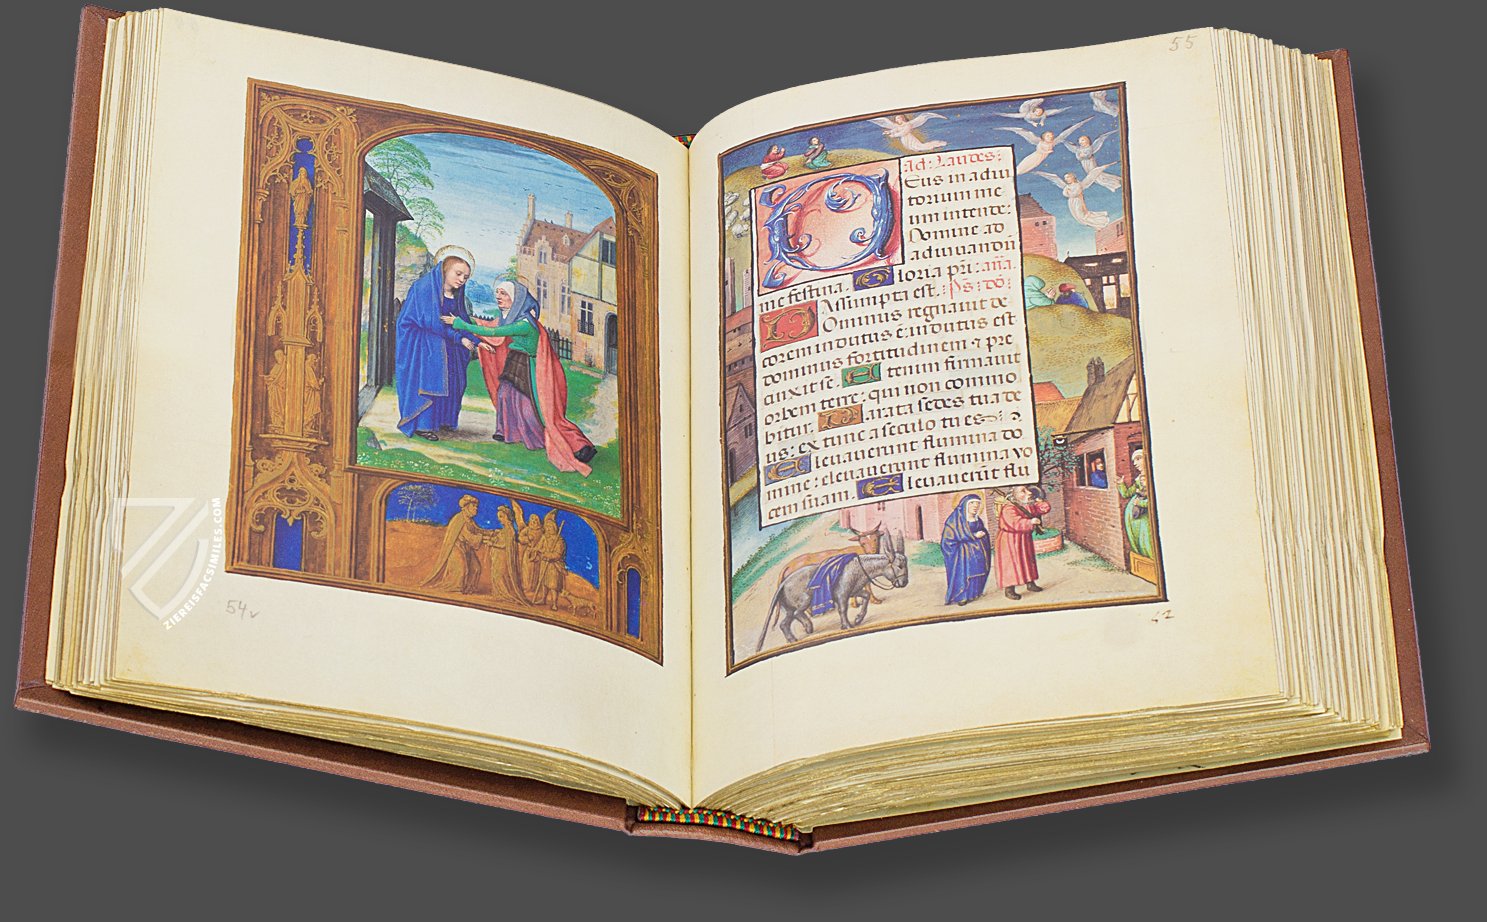 54v
ZIEREISFACSIMILES.COM
55
Ad: Laudes:
Eus in adiu
torium me
um intende:
Domine ad
adiuuandū
me festina. G loria pr̄i: an̄a.
Assumpta est. Ps: do:
D Ominus regnauit de
corem indutus ē: indutus est
dominus fortitudinem & pre
cinxit se. A tenim firmauit
orbem terre: qui non commo
bitur. P arata sedes tua de
us: ex tunc a seculo tu es
E leuauerunt flumina do
mine: eleuauerunt flumina vo
cem suam. E leuauerūt flu